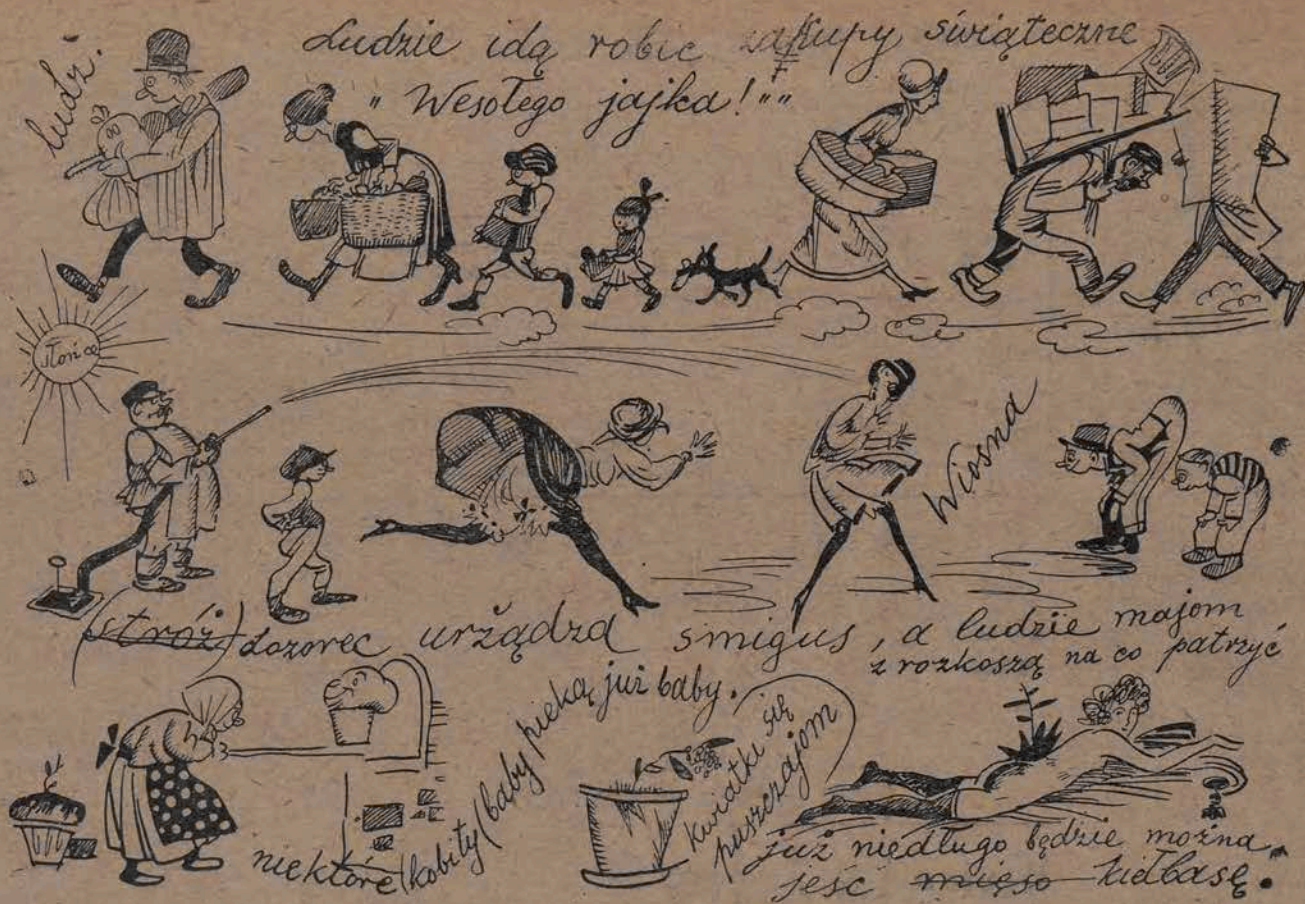 ludź.
Ludzie idą robic zakupy świąteczne
„Wesołego jajka!""
słońce
Wiosna
(stróż) dozorec urżądza smigus, a ludzie majom
z rozkoszą na co patrzyć
niektóre (kobiły (baby pieką już baby.
kwiatki się
puszczajom
już niedługo będzie można
jeść mięso kiełbasę.